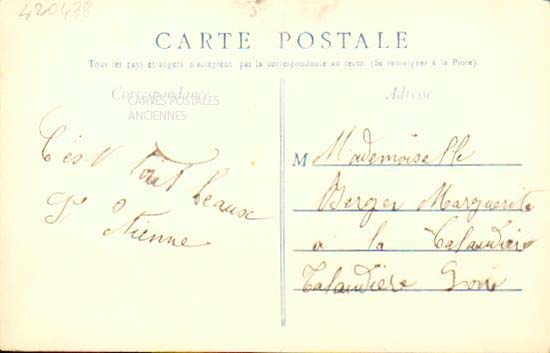 420438
CARTE POSTALE
Tous les pays étrangers n'acceptent pas la correspondance au recto. (Se renseigner à la Poste).
Correspondance
Adresse
CARTES POSTALES
ANCIENNES
C'est tout beaux
St Etienne
M Mademoiselle
Berger Marguerite
a la Talaudière
Talaudière